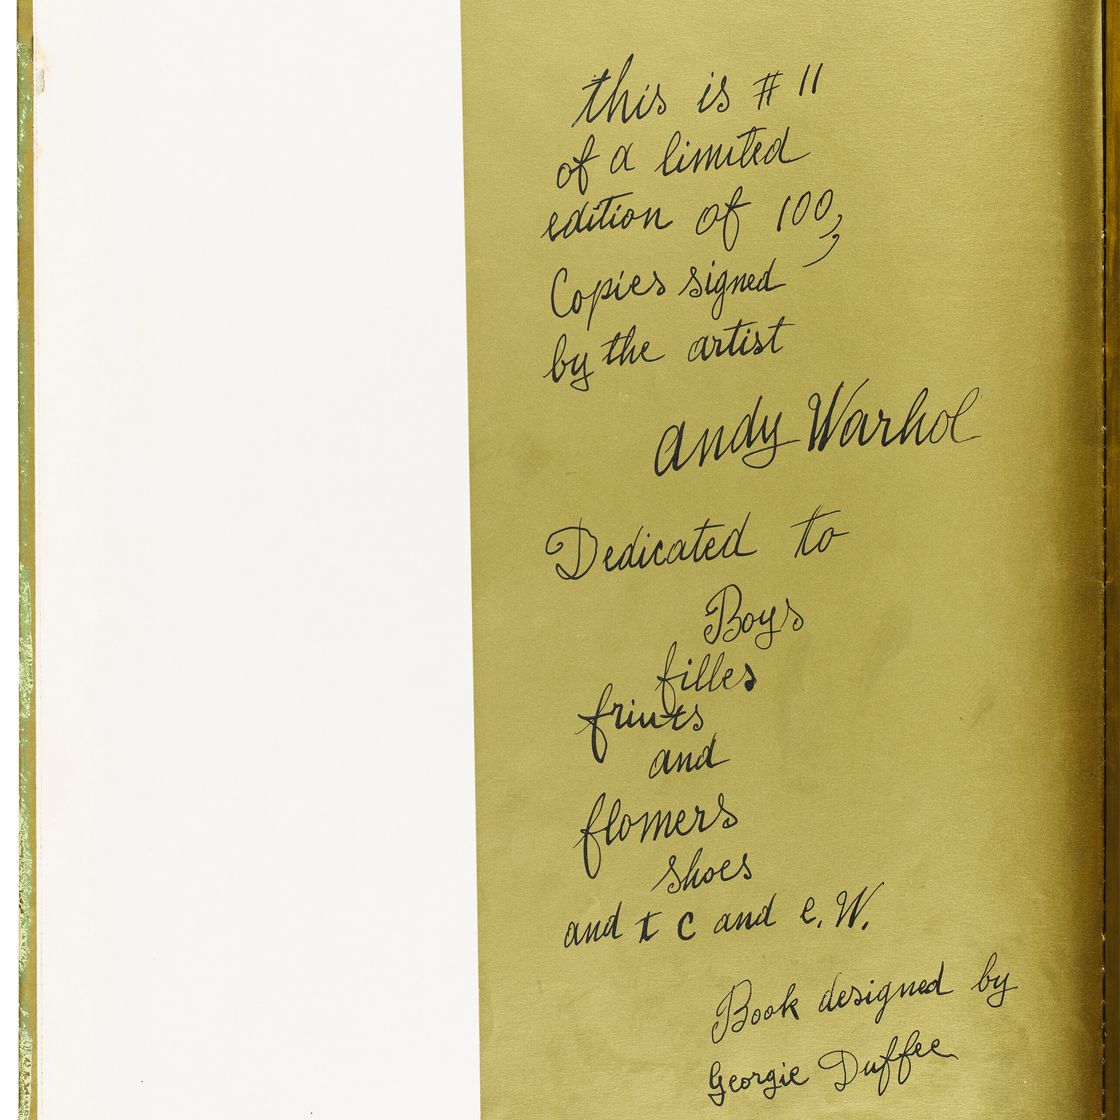 this is # 11
of a limited
edition of 100,
Copies signed
by the artist
andy Warhol
Dedicated to
Boys
filles
friuts
and
flomers
shoes
and t c and e. W.
Book designed by
Georgie Duffee